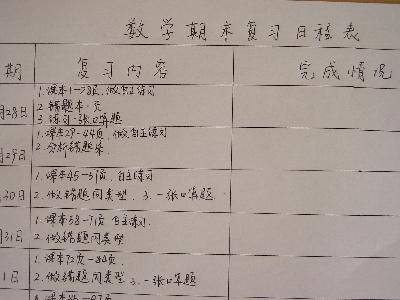 数学期末复习日程表
期 复习内容 完成情况
月28日 1.课本1-28页,做自主练习
2.错题本一页
3.练习一张口算题
月29日 1.课本29-44页,做自主练习
2.分析错题集
月30日 1.课本45-57页 自主练习
2.做错题同类型 3.一张口算题
月31日 1.课本58-71页 自主练习
2.做错题同类型
月1日 1.课本72页-84页
2.做错题同类型 3.一张口算题